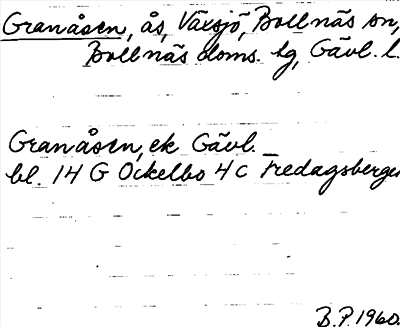 Granåsen, ås, Växsjö, Bollnäs sn,
Bollnäs doms. tg, Gävl. l.
Granåsen, ek Gävl.
bl. 14 G Ockelbo 4 c Fredagsberget
B.P. 1960.